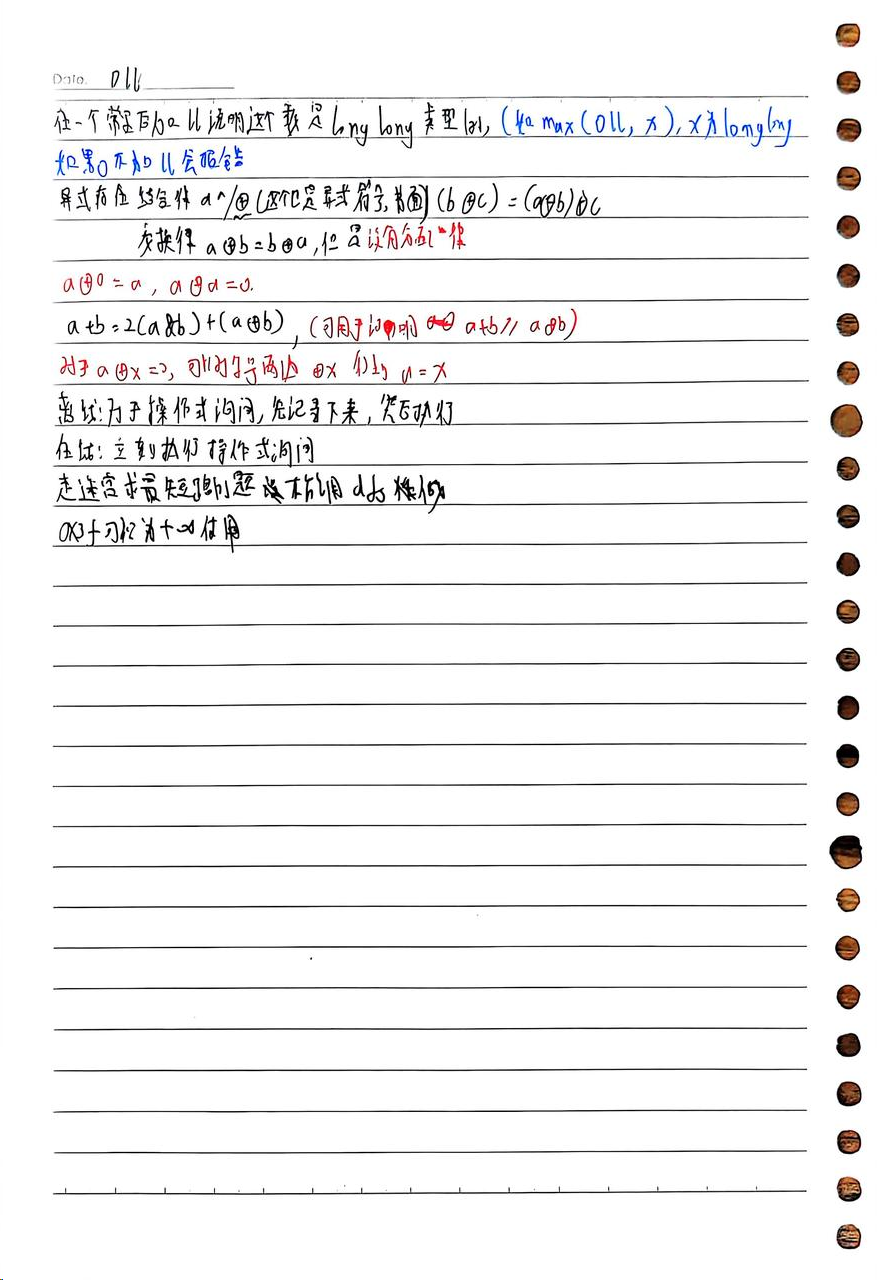 Date. 0ll
在一个常量后加上ll说明这个数是long long类型的,(如max(0ll, x), x为long long
如果0不加ll会报错
异或存在结合律 a^/⊕(这个也是异或符号,前面)(b⊕c)=(a⊕b)⊕c
交换律 a⊕b=b⊕a,但是没有分配律
a⊕0=a, a⊕a=0.
a+b=2(a&b)+(a⊕b), (可用于证明 a+b≥a⊕b)
对于a⊕x=0, 可以对等号两边⊕x 得 a=x
离线:对于操作或询问,先记录下来,然后执行
在线:立刻执行操作或询问
走迷宫求最短路问题 不能用dfs
0x3f可视为+∞使用